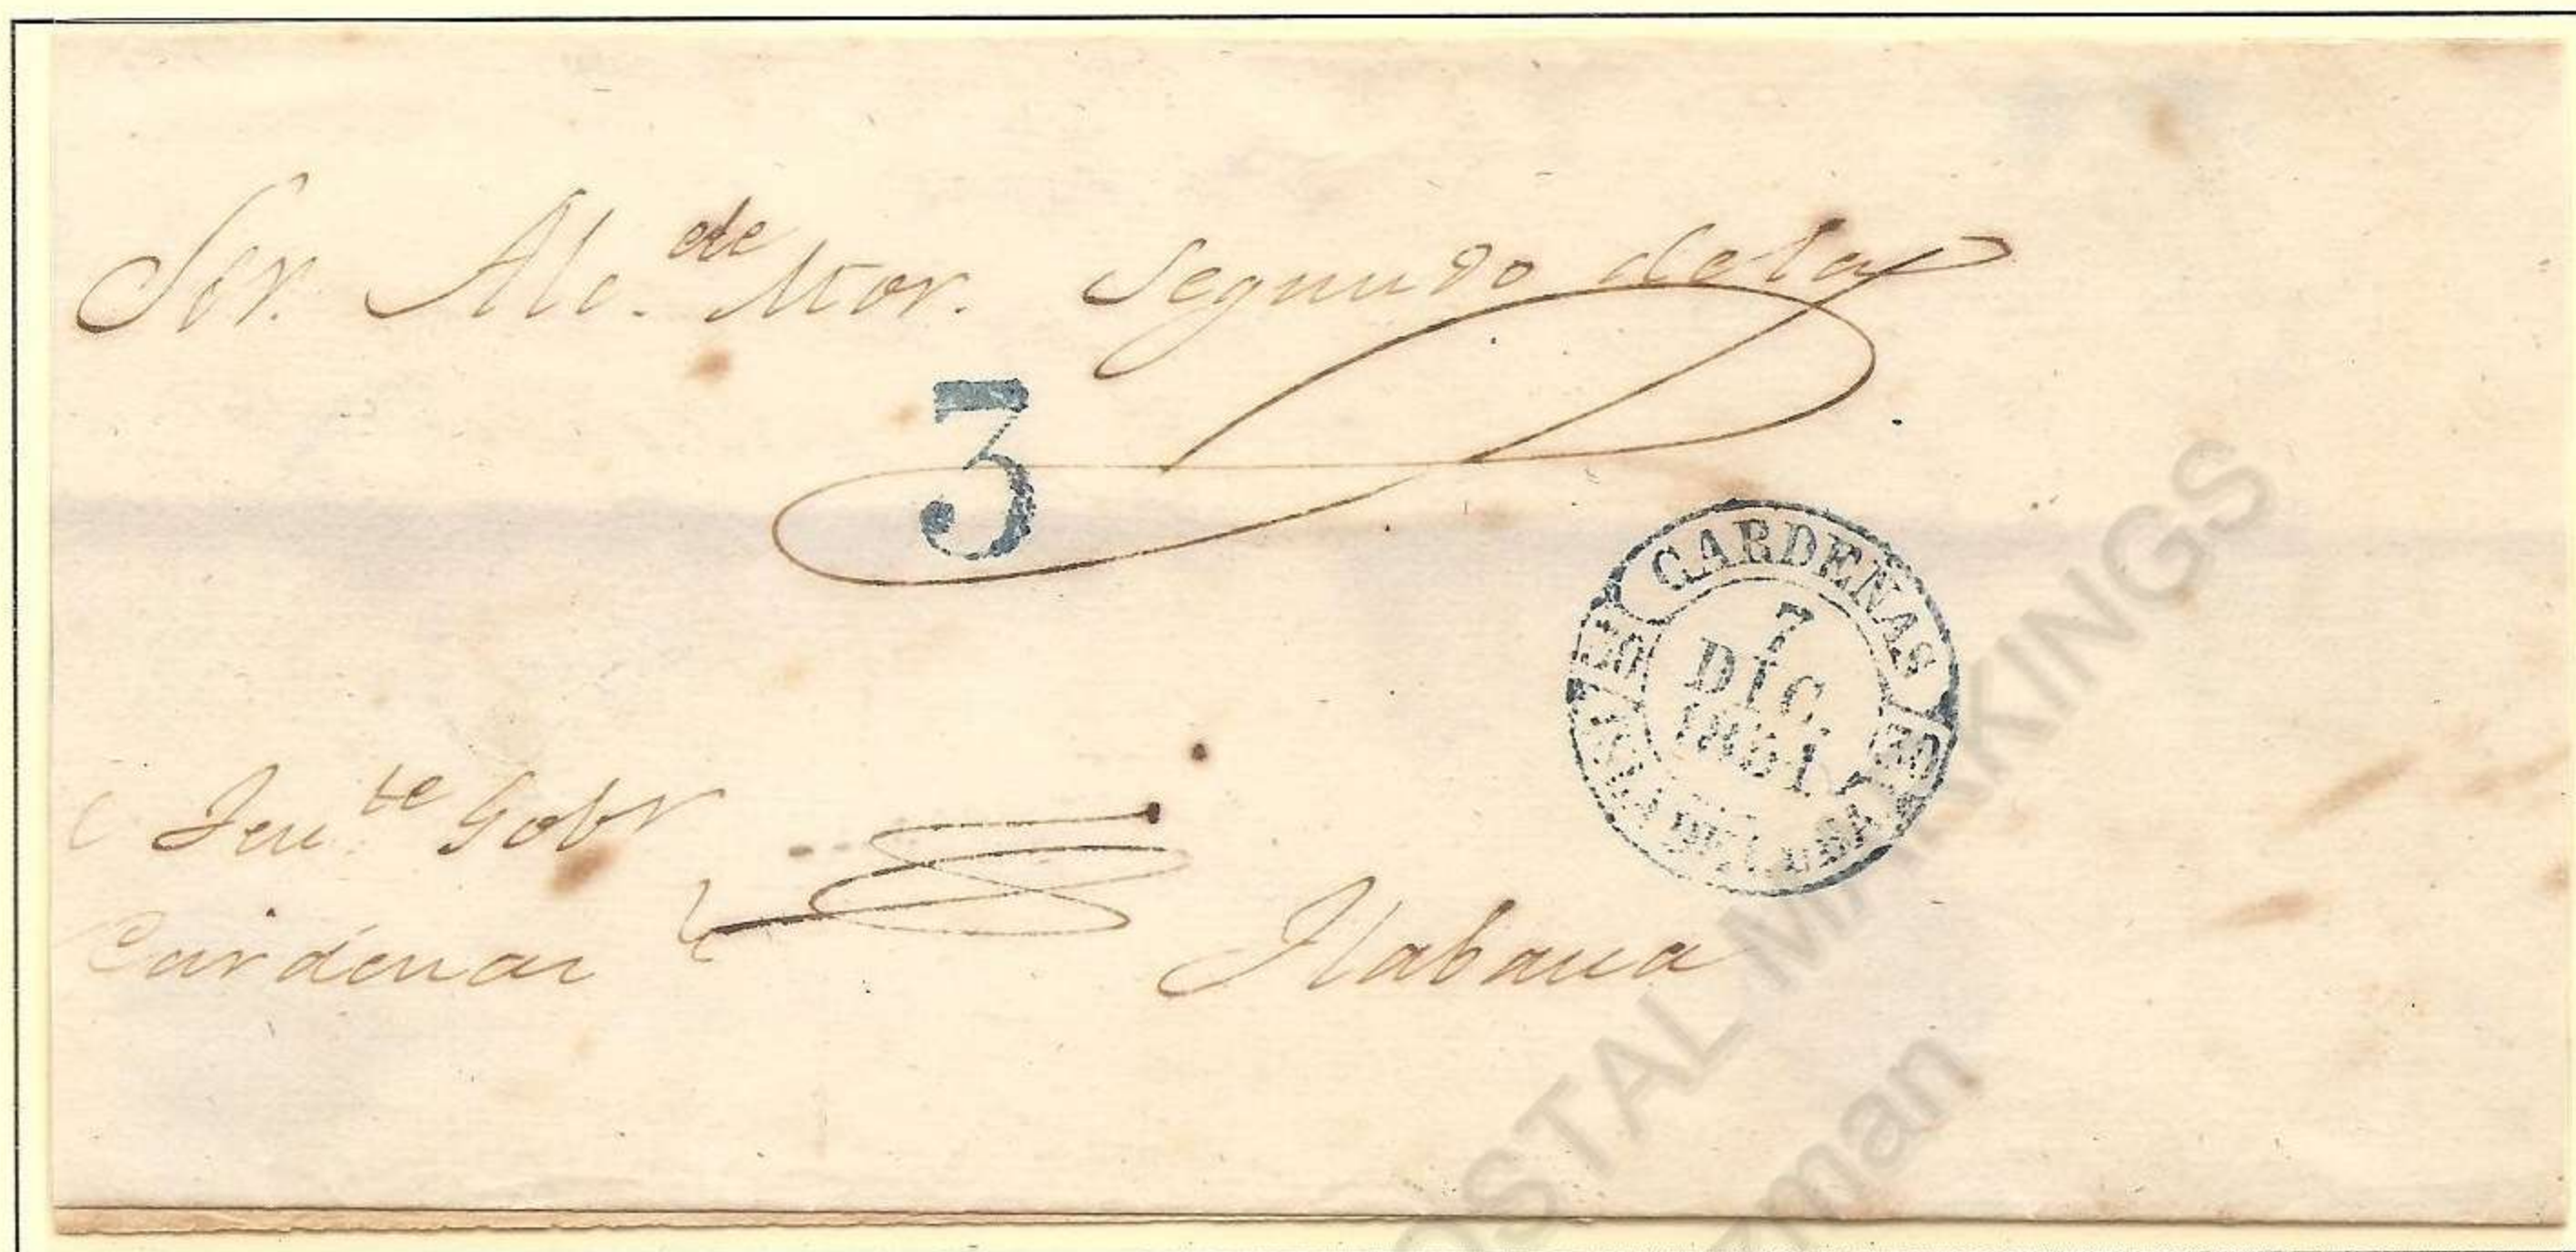 Sor. Alc.de Mor. Segundo de la
3
CARDENAS
7
DIC.
1851
ISLA DE CUBA
Ten.te Gobr
Cardenas
Habana
POSTAL MARKINGS